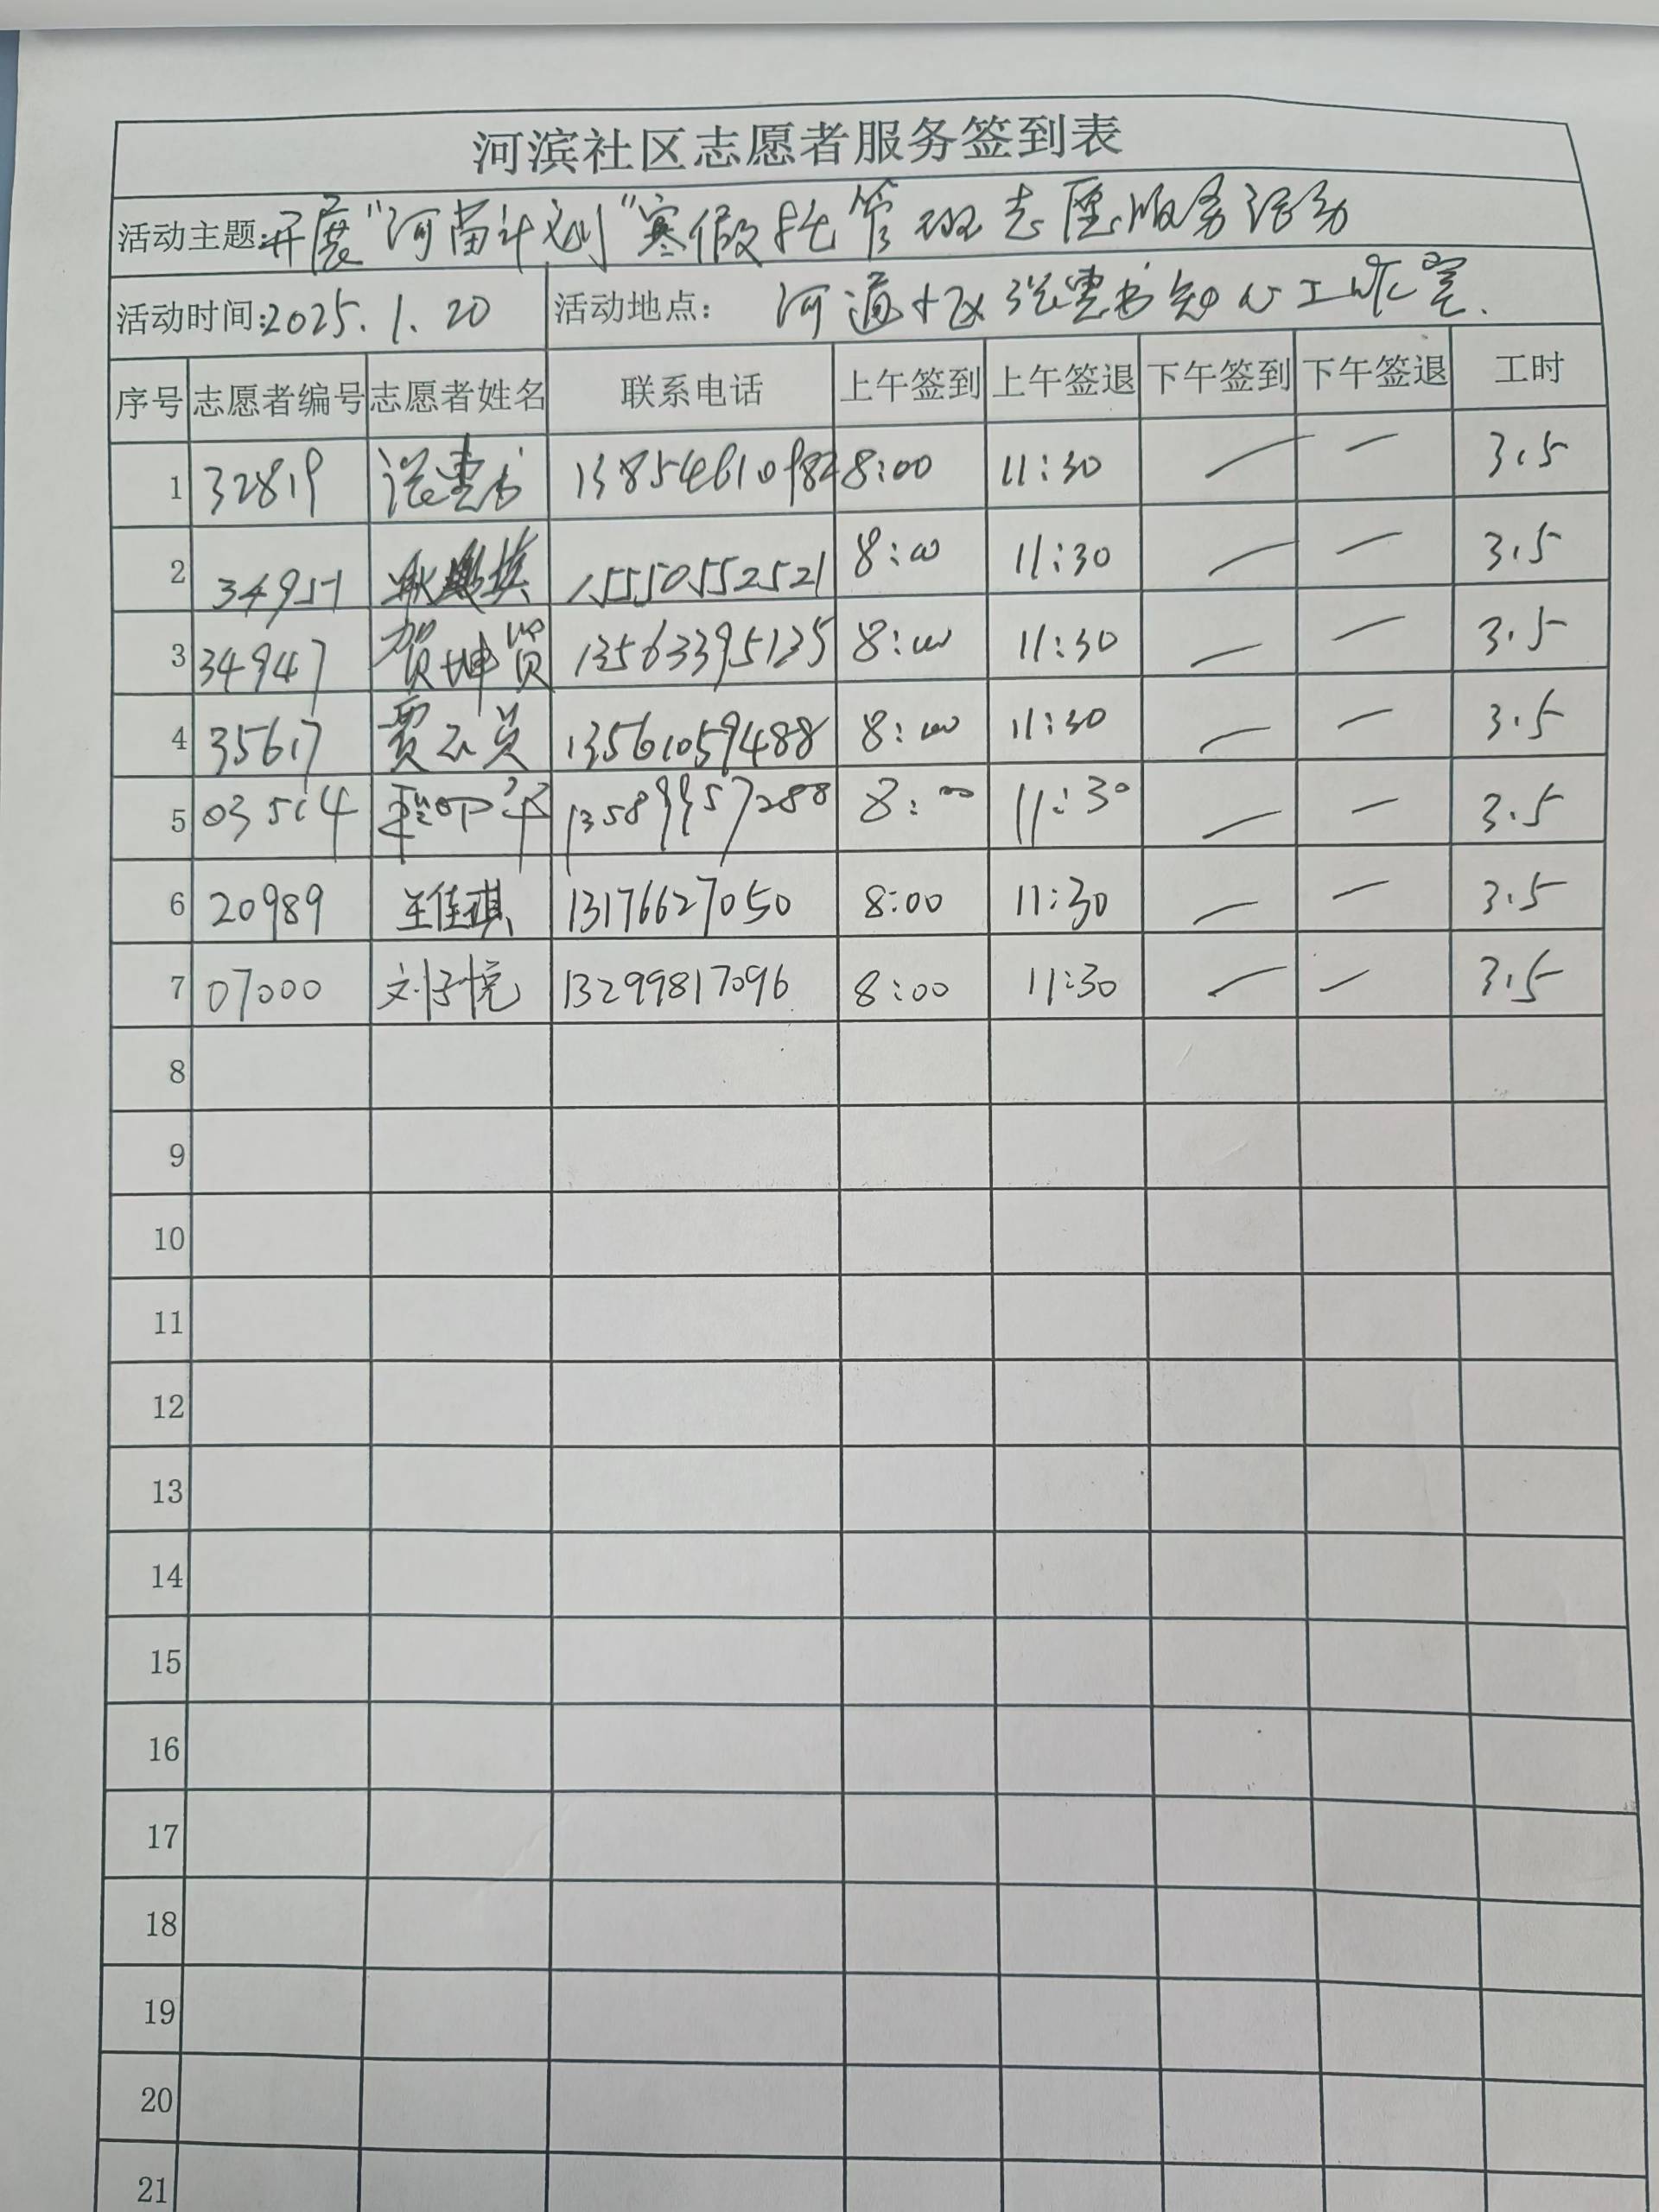 河滨社区志愿者服务签到表
活动主题:开展"河苗计划"寒假托管班志愿服务活动
活动时间:2025.1.20 活动地点: 河道社区 书知心工作室.
序号 志愿者编号 志愿者姓名 联系电话 上午签到 上午签退 下午签到 下午签退 工时
1 32819 13854610982 8:00 11:30 — — 3.5
2 34951 15550552521 8:00 11:30 — — 3.5
3 34947 贺坤贤 13563395135 8:00 11:30 — — 3.5
4 35617 贾 13561059488 8:00 11:30 — — 3.5
5 03514 13589957288 8:00 11:30 — — 3.5
6 20989 王佳琪 13176627050 8:00 11:30 — — 3.5
7 07000 刘子悦 13299817096 8:00 11:30 — — 3.5
8
9
10
11
12
13
14
15
16
17
18
19
20
21